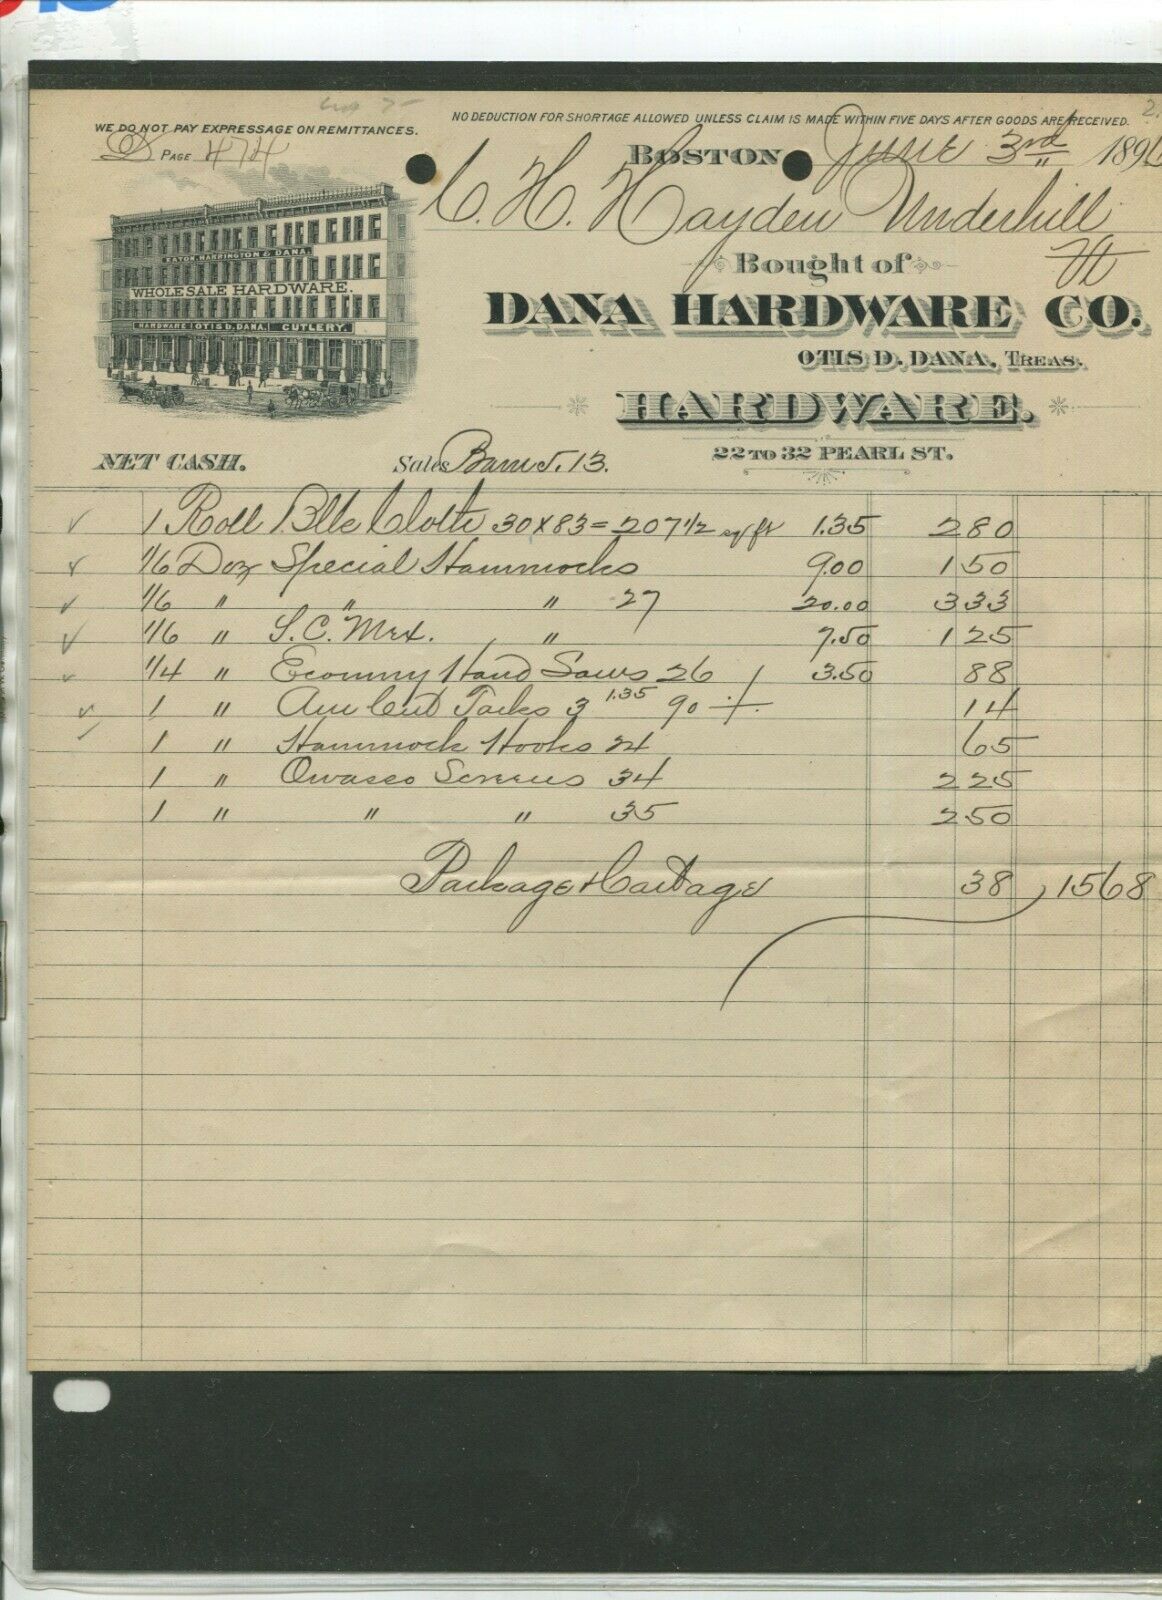 WE DO NOT PAY EXPRESSAGE ON REMITTANCES.
NO DEDUCTION FOR SHORTAGE ALLOWED UNLESS CLAIM IS MADE WITHIN FIVE DAYS AFTER GOODS ARE RECEIVED.
PAGE 474
BOSTON, June 3rd 1896
C. H. Hayden Underhill
Vt
EATON, HARRINGTON & DANA.
WHOLESALE HARDWARE.
HARDWARE OTIS D. DANA. CUTLERY.
Bought of
DANA HARDWARE CO.
OTIS D. DANA, TREAS.
HARDWARE.
22 TO 32 PEARL ST.
NET CASH.
Sales 13.
1 Roll Blk Cloth 30x83=207 1/2 sq ft 1.35 280
1/6 Doz Special Hammocks 9.00 150
1/6 " " " 27 20.00 333
1/6 " S.C. Mex. " 7.50 125
1/4 " Economy Hand Saws 26 3.50 88
1 " Am Cut Tacks 3 1.35 90 14
1 " Hammock Hooks 24 65
1 " Owasco Screens 34 225
1 " " " 35 250
Package & Cartage 38 1568